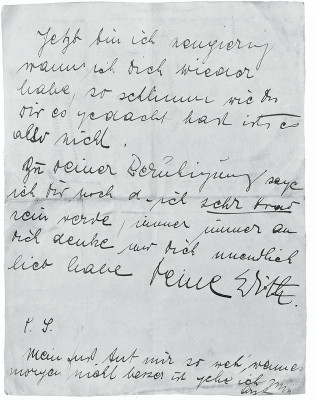 Jetzt bin ich neugierig
wann ich Dich wieder
habe, so schlimm wie Du
Dir es gedacht hast ist es
also nicht.
Zu Deiner Beruhigung sage
ich Dir noch d. ich sehr brav
sein werde, immer immer an
Dich denke und Dich unendlich
lieb habe Deine Edith.
P. S.
Mein tut mir so weh, wenn es
morgen nicht besser ist gehe ich zum